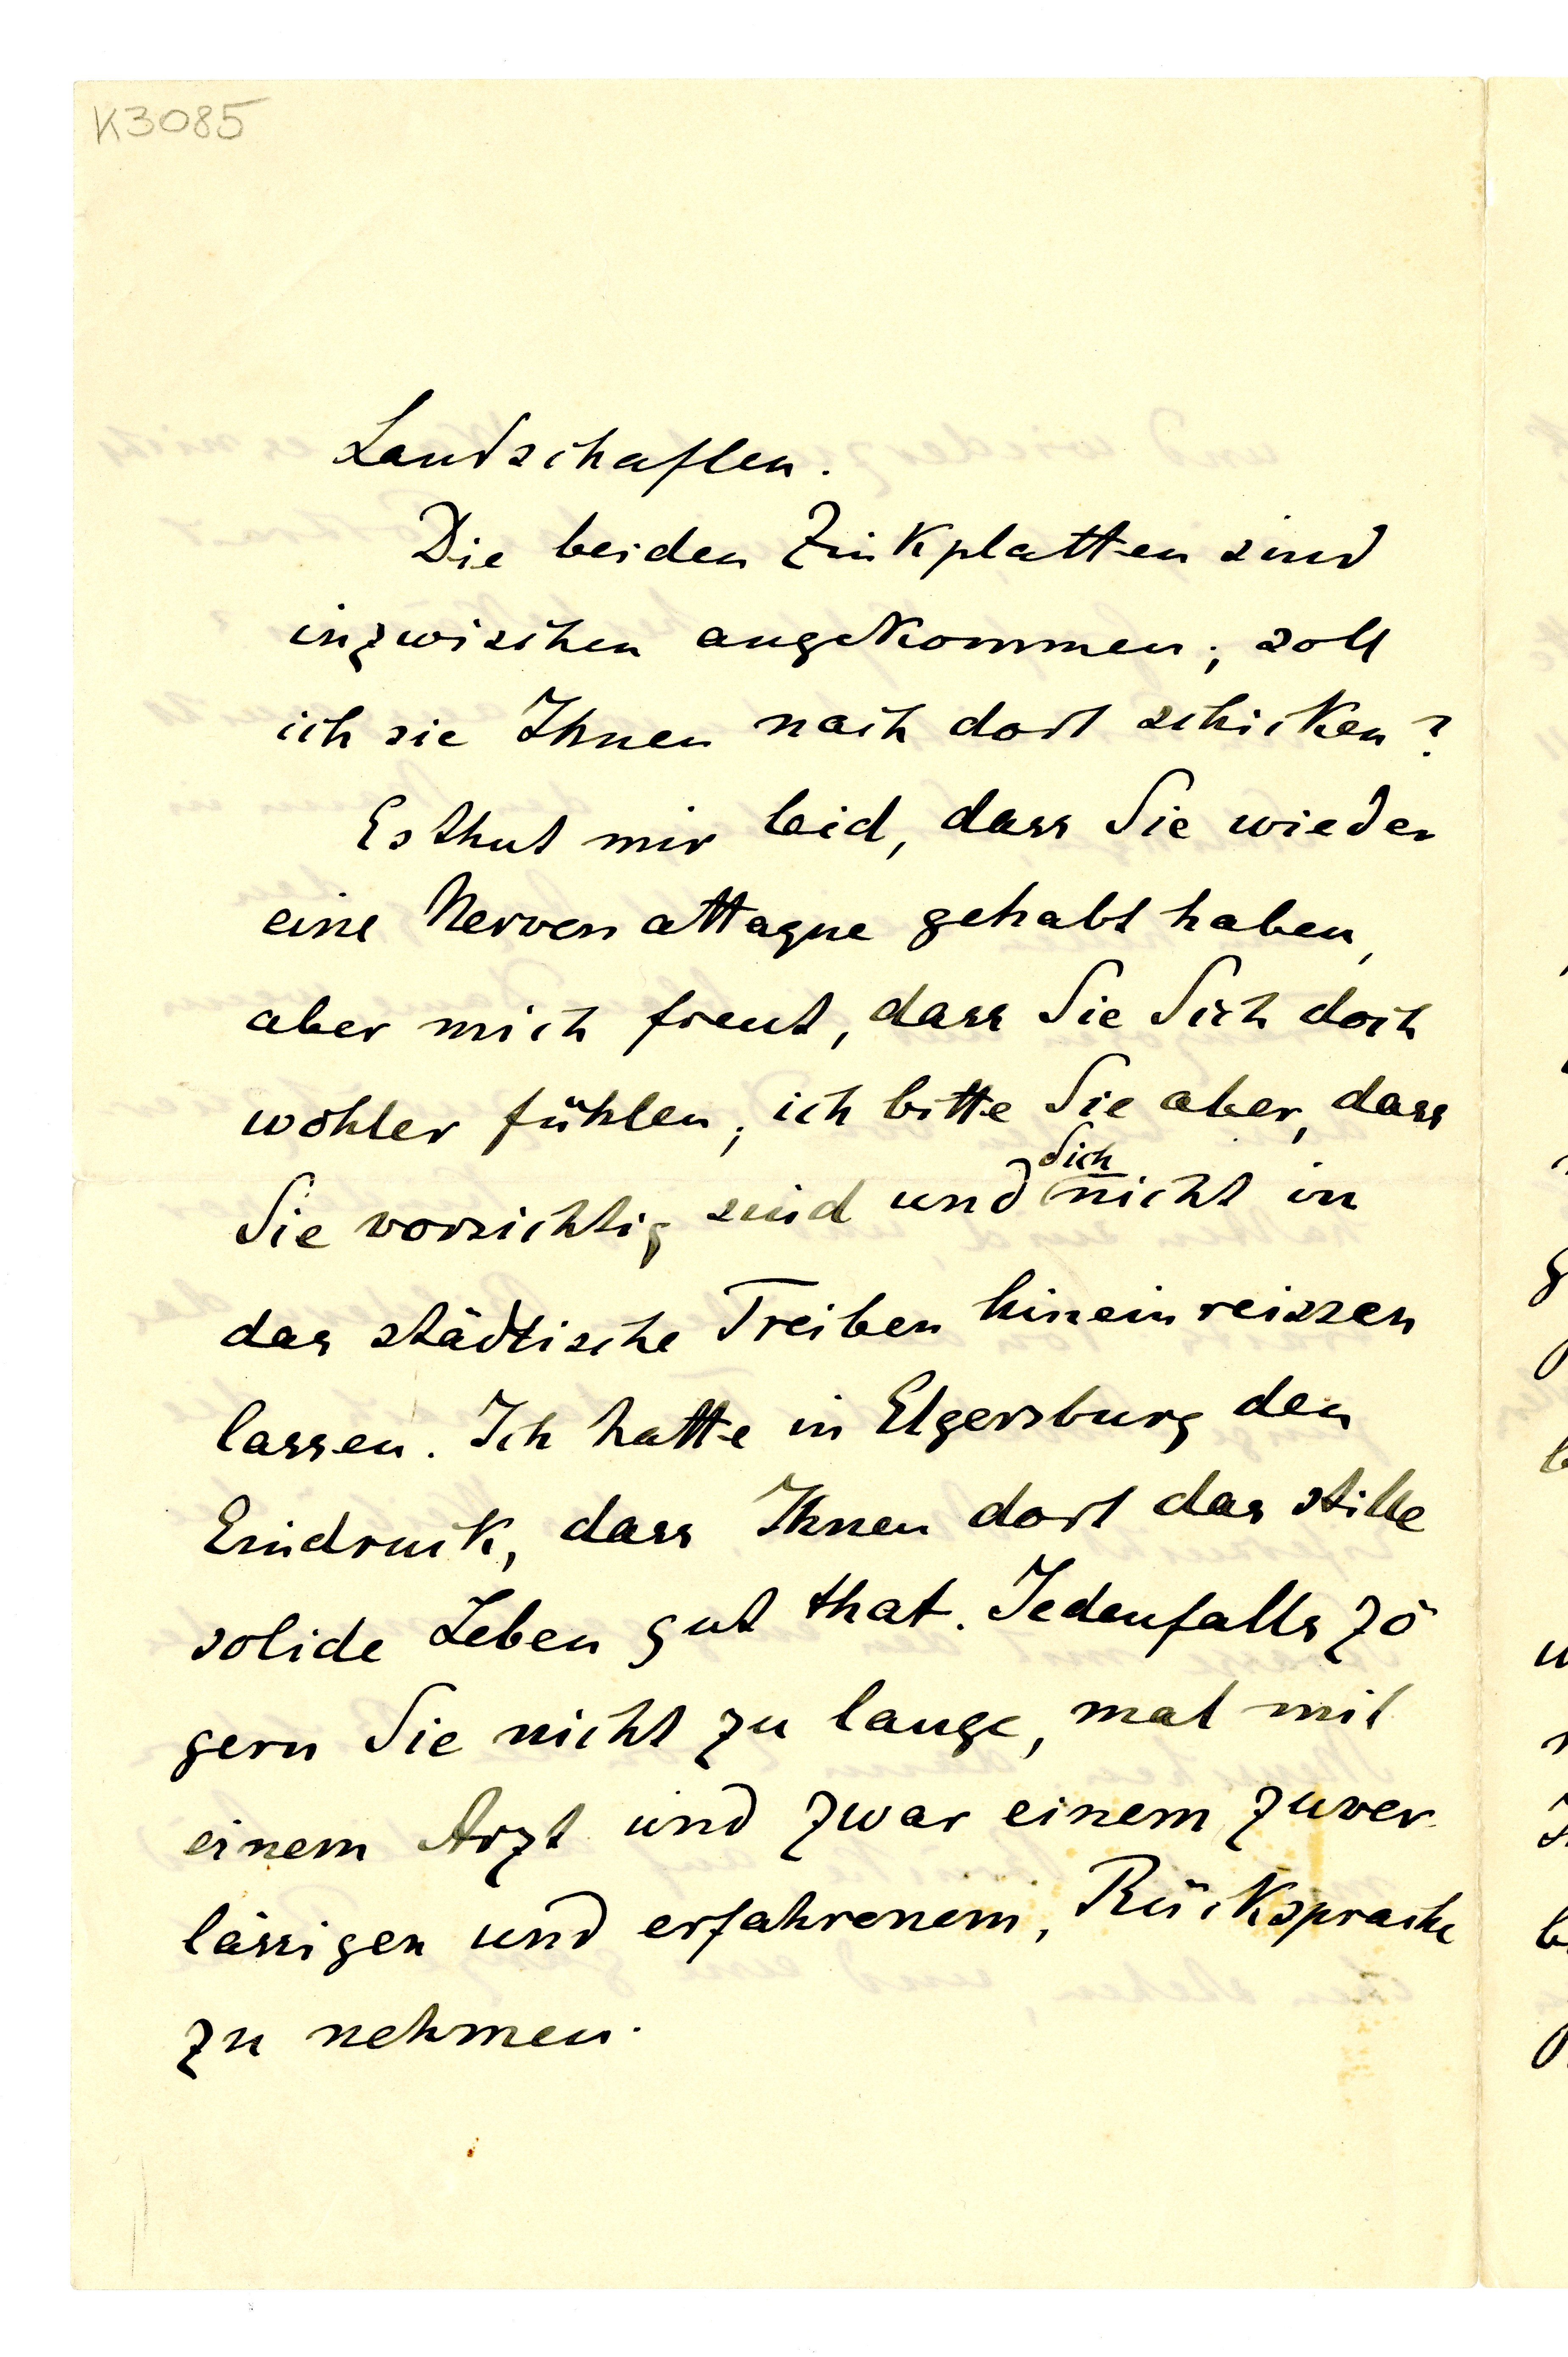 K3085
Landschaften.
Die beiden Zinkplatten sind
inzwischen angekommen; soll
ich sie Ihnen nach dort schicken?
Es thut mir leid, dass Sie wieder
eine Nervenattaque gehabt haben,
aber mich freut, dass Sie Sich doch
wohler fühlen; ich bitte Sie aber, dass
Sich
Sie vorsichtig sind und nicht in
das städtische Treiben hineinreissen
lassen. Ich hatte in Elgersburg den
Eindruck, dass Ihnen dort das stille
solide Leben gut that. Jedenfalls zö
gern Sie nicht zu lange, mal mit
einem Arzt und zwar einem zuver-
lässigen und erfahrenem, Rücksprache
zu nehmen.